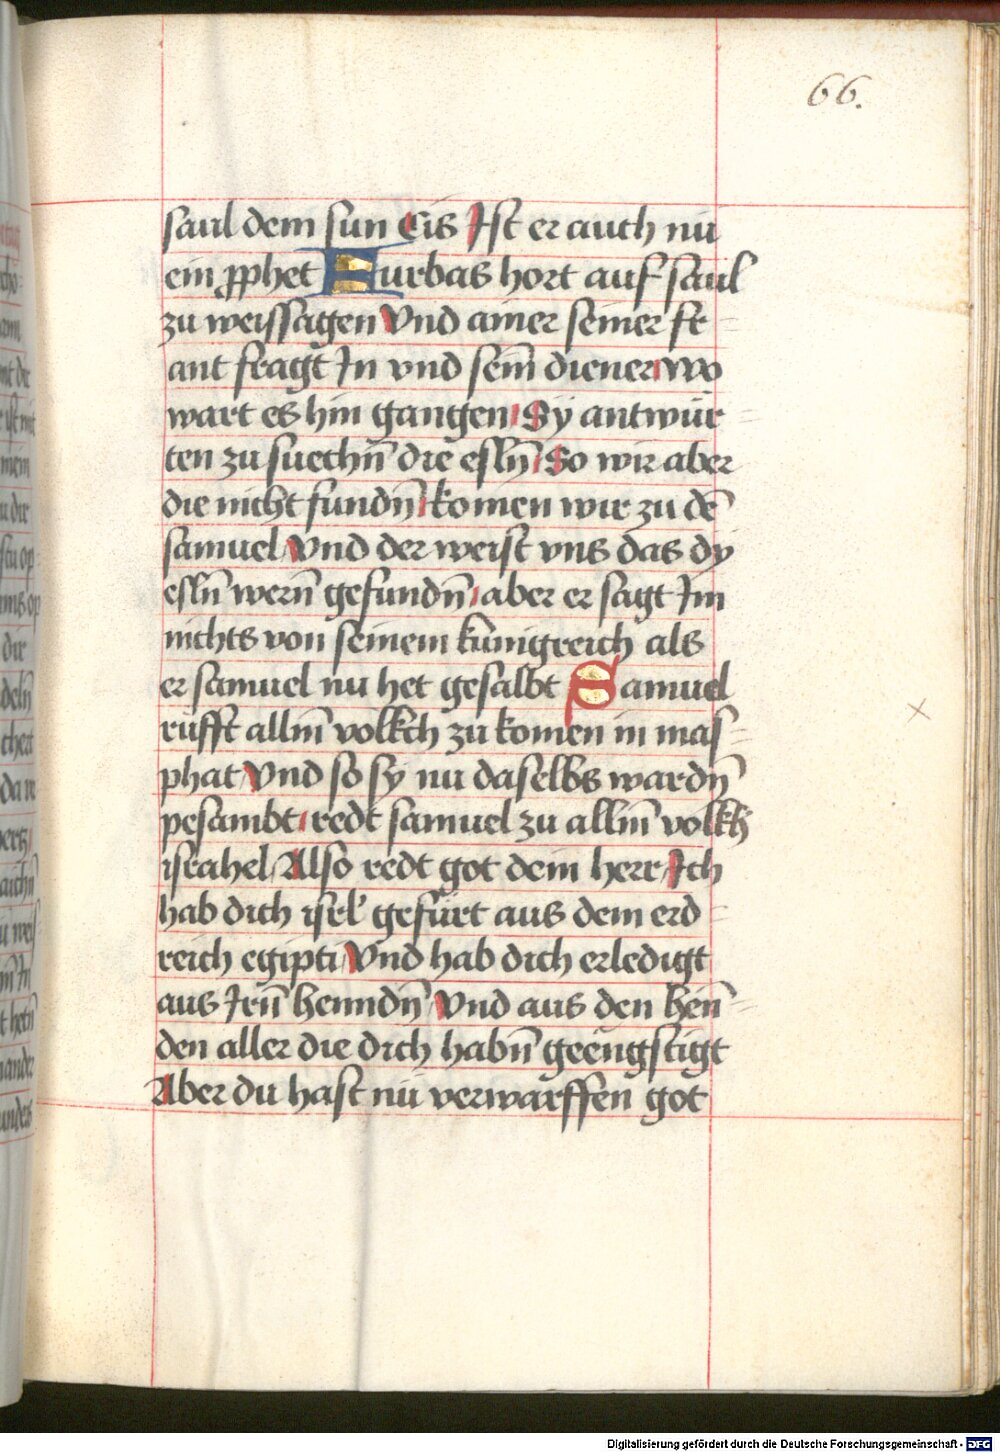 66.
saul dem sun Cis Ist er auch nu
ein ꝓphet Furbas hort auf saul
zu weissagen Vnd ainer seiner fr=
ant fragt In vnd sein̄ diener wo
wart es hin gangen Sy antwur=
ten zu suechn̄ die esln̄ So wir aber
die nicht fundn̄ komen wir zu dē
samuel Vnd der weist vns das dy
esln̄ wern̄ gefundn̄ aber er sagt Im
nichts von seinem kunigreich als
er samuel nu het gesalbt Samuel
rufft allm̄ volkch zu komen in mas=
phat Vnd so sy nu daselbs wardn̄
pesambt redt samuel zu allm̄ volkh
israhel Also redt got dein herr Ich
hab dich isrl' gefurt aus dem erd=
reich egipti Vnd hab dich erledigt
aus Irn̄ henndn̄ Vnd aus den hēn=
den aller die dich habn̄ geengstigt
Aber du hast nu verwarffen got
Digitalisierung gefördert durch die Deutsche Forschungsgemeinschaft - DFG